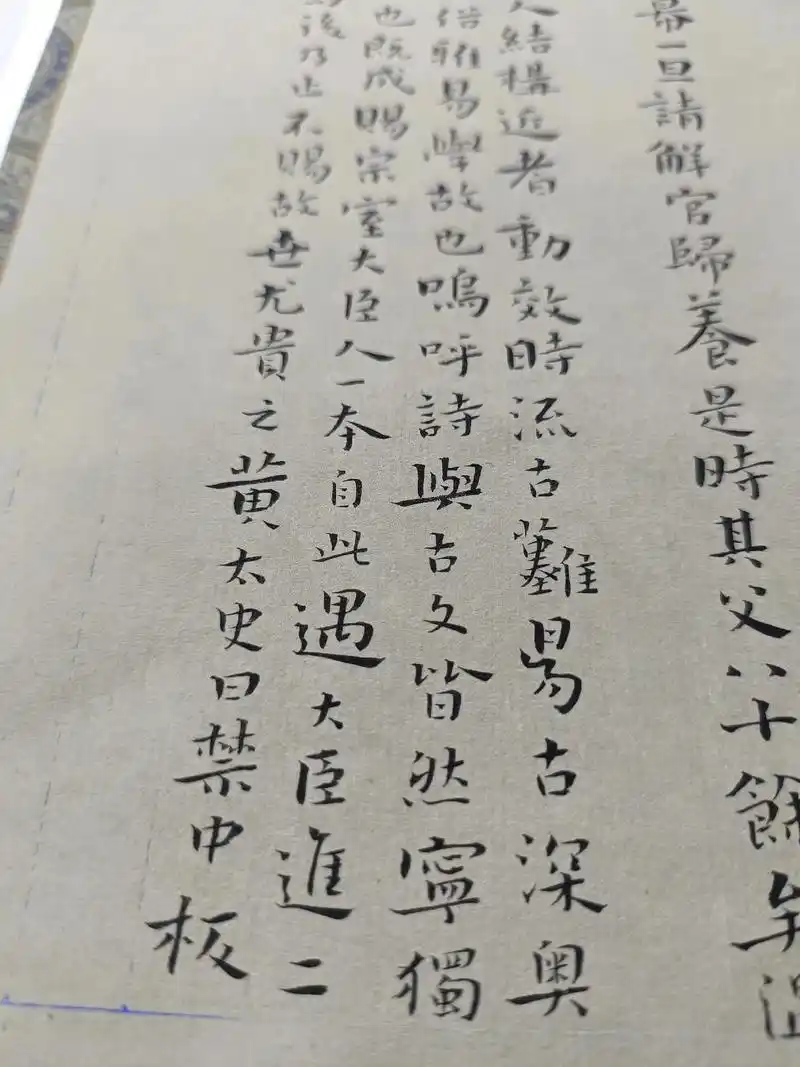 幕一旦請解官歸養是時其父八十餘年
人結構近者動效時流古難易古深奧
俗雅易學故也嗚呼詩與古文皆然寧獨
也既成賜宗室大臣人一本自此遇大臣進二
後乃止不賜故世尤貴之黄太史曰禁中板